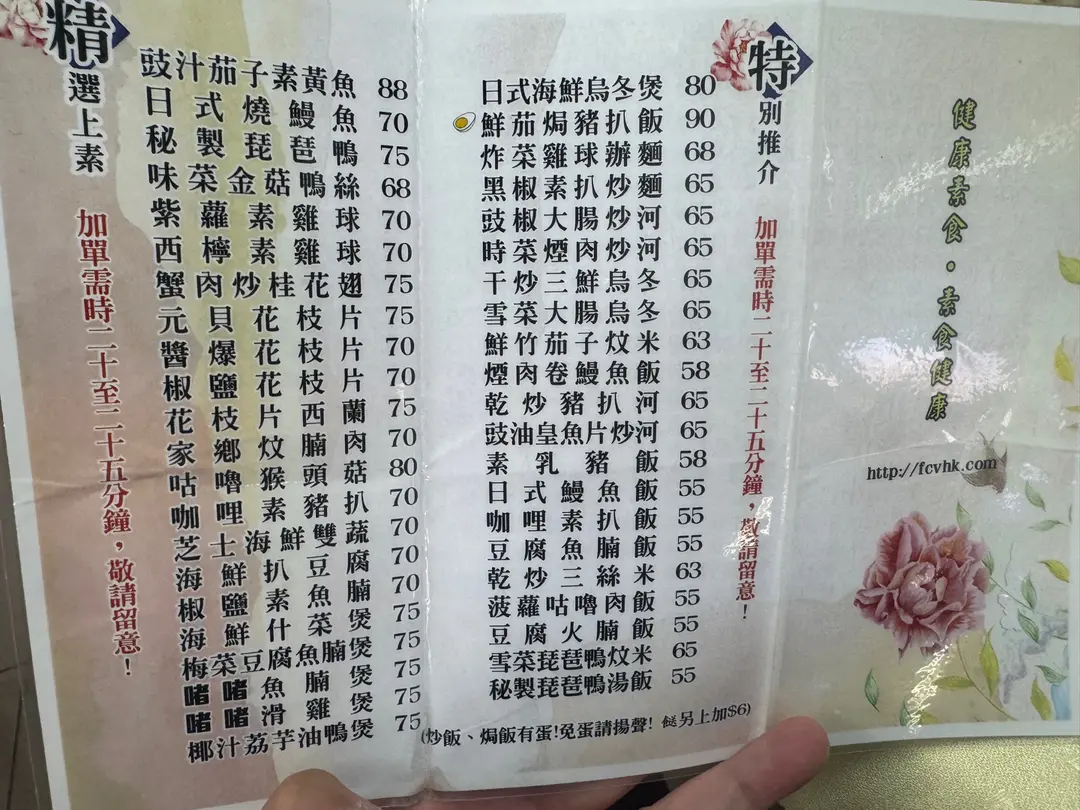 精選上素
加單需時二十至二十五分鐘，敬請留意！
豉汁茄子素黃魚 88
日式燒鰻魚 70
秘製琵琶鴨 75
味菜金菇鴨絲 68
紫蘿素雞球 70
西檸素雞球 70
蟹肉炒桂花翅 75
元貝花枝片 75
醬爆花枝片 70
椒鹽花枝片 70
花枝片西蘭 75
家鄉炆腩肉 70
咕嚕猴頭菇 80
咖哩素豬扒 70
芝士海鮮雙蔬 70
海鮮扒豆腐 70
椒鹽素魚腩 70
海鮮什菜煲 75
梅菜豆腐魚腩煲 75
啫啫魚腩煲 75
啫啫滑雞煲 75
椰汁荔芋油鴨煲 75
特別推介
加單需時二十至二十五分鐘，敬請留意！
日式海鮮烏冬煲 80
鮮茄焗豬扒飯 90
炸菜雞球辦麵 68
黑椒素扒炒麵 65
豉椒大腸炒河 65
時菜煙肉炒河 65
干炒三鮮烏冬 65
雪菜大腸烏冬 65
鮮竹茄子炆米 63
煙肉卷鰻魚飯 58
乾炒豬扒河 65
豉油皇魚片炒河 65
素乳豬飯 58
日式鰻魚飯 55
咖哩素扒飯 55
豆腐魚腩飯 55
乾炒三絲米 63
菠蘿咕嚕肉飯 55
豆腐火腩飯 55
雪菜琵琶鴨炆米 65
秘製琵琶鴨湯飯 55
(炒飯、焗飯有蛋!免蛋請揚聲! 餸另上加$6)
健康素食・素食健康
http://fcvhk.com